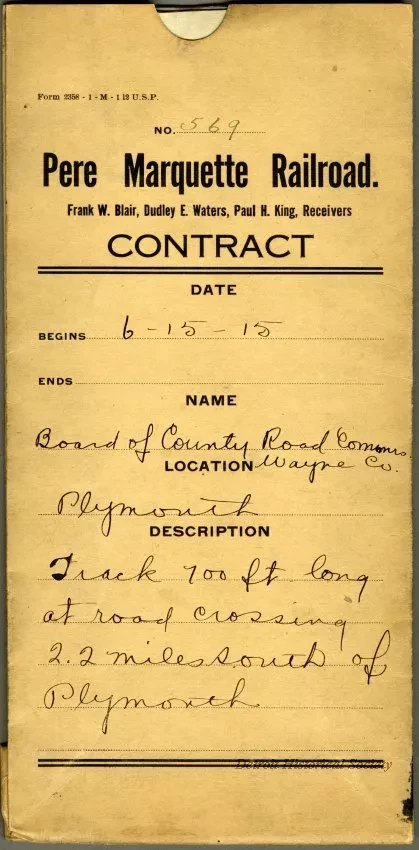 Form 2358 - 1 - M - 1 12 U.S.P.
NO. 569
Pere Marquette Railroad.
Frank W. Blair, Dudley E. Waters, Paul H. King, Receivers
CONTRACT
DATE
BEGINS 6-15-15
ENDS
NAME
Board of County Road Commrs.
Wayne Co.
LOCATION
Plymouth
DESCRIPTION
Track 700 ft long
at road crossing
2.2 miles south of
Plymouth
Detroit Historical Society